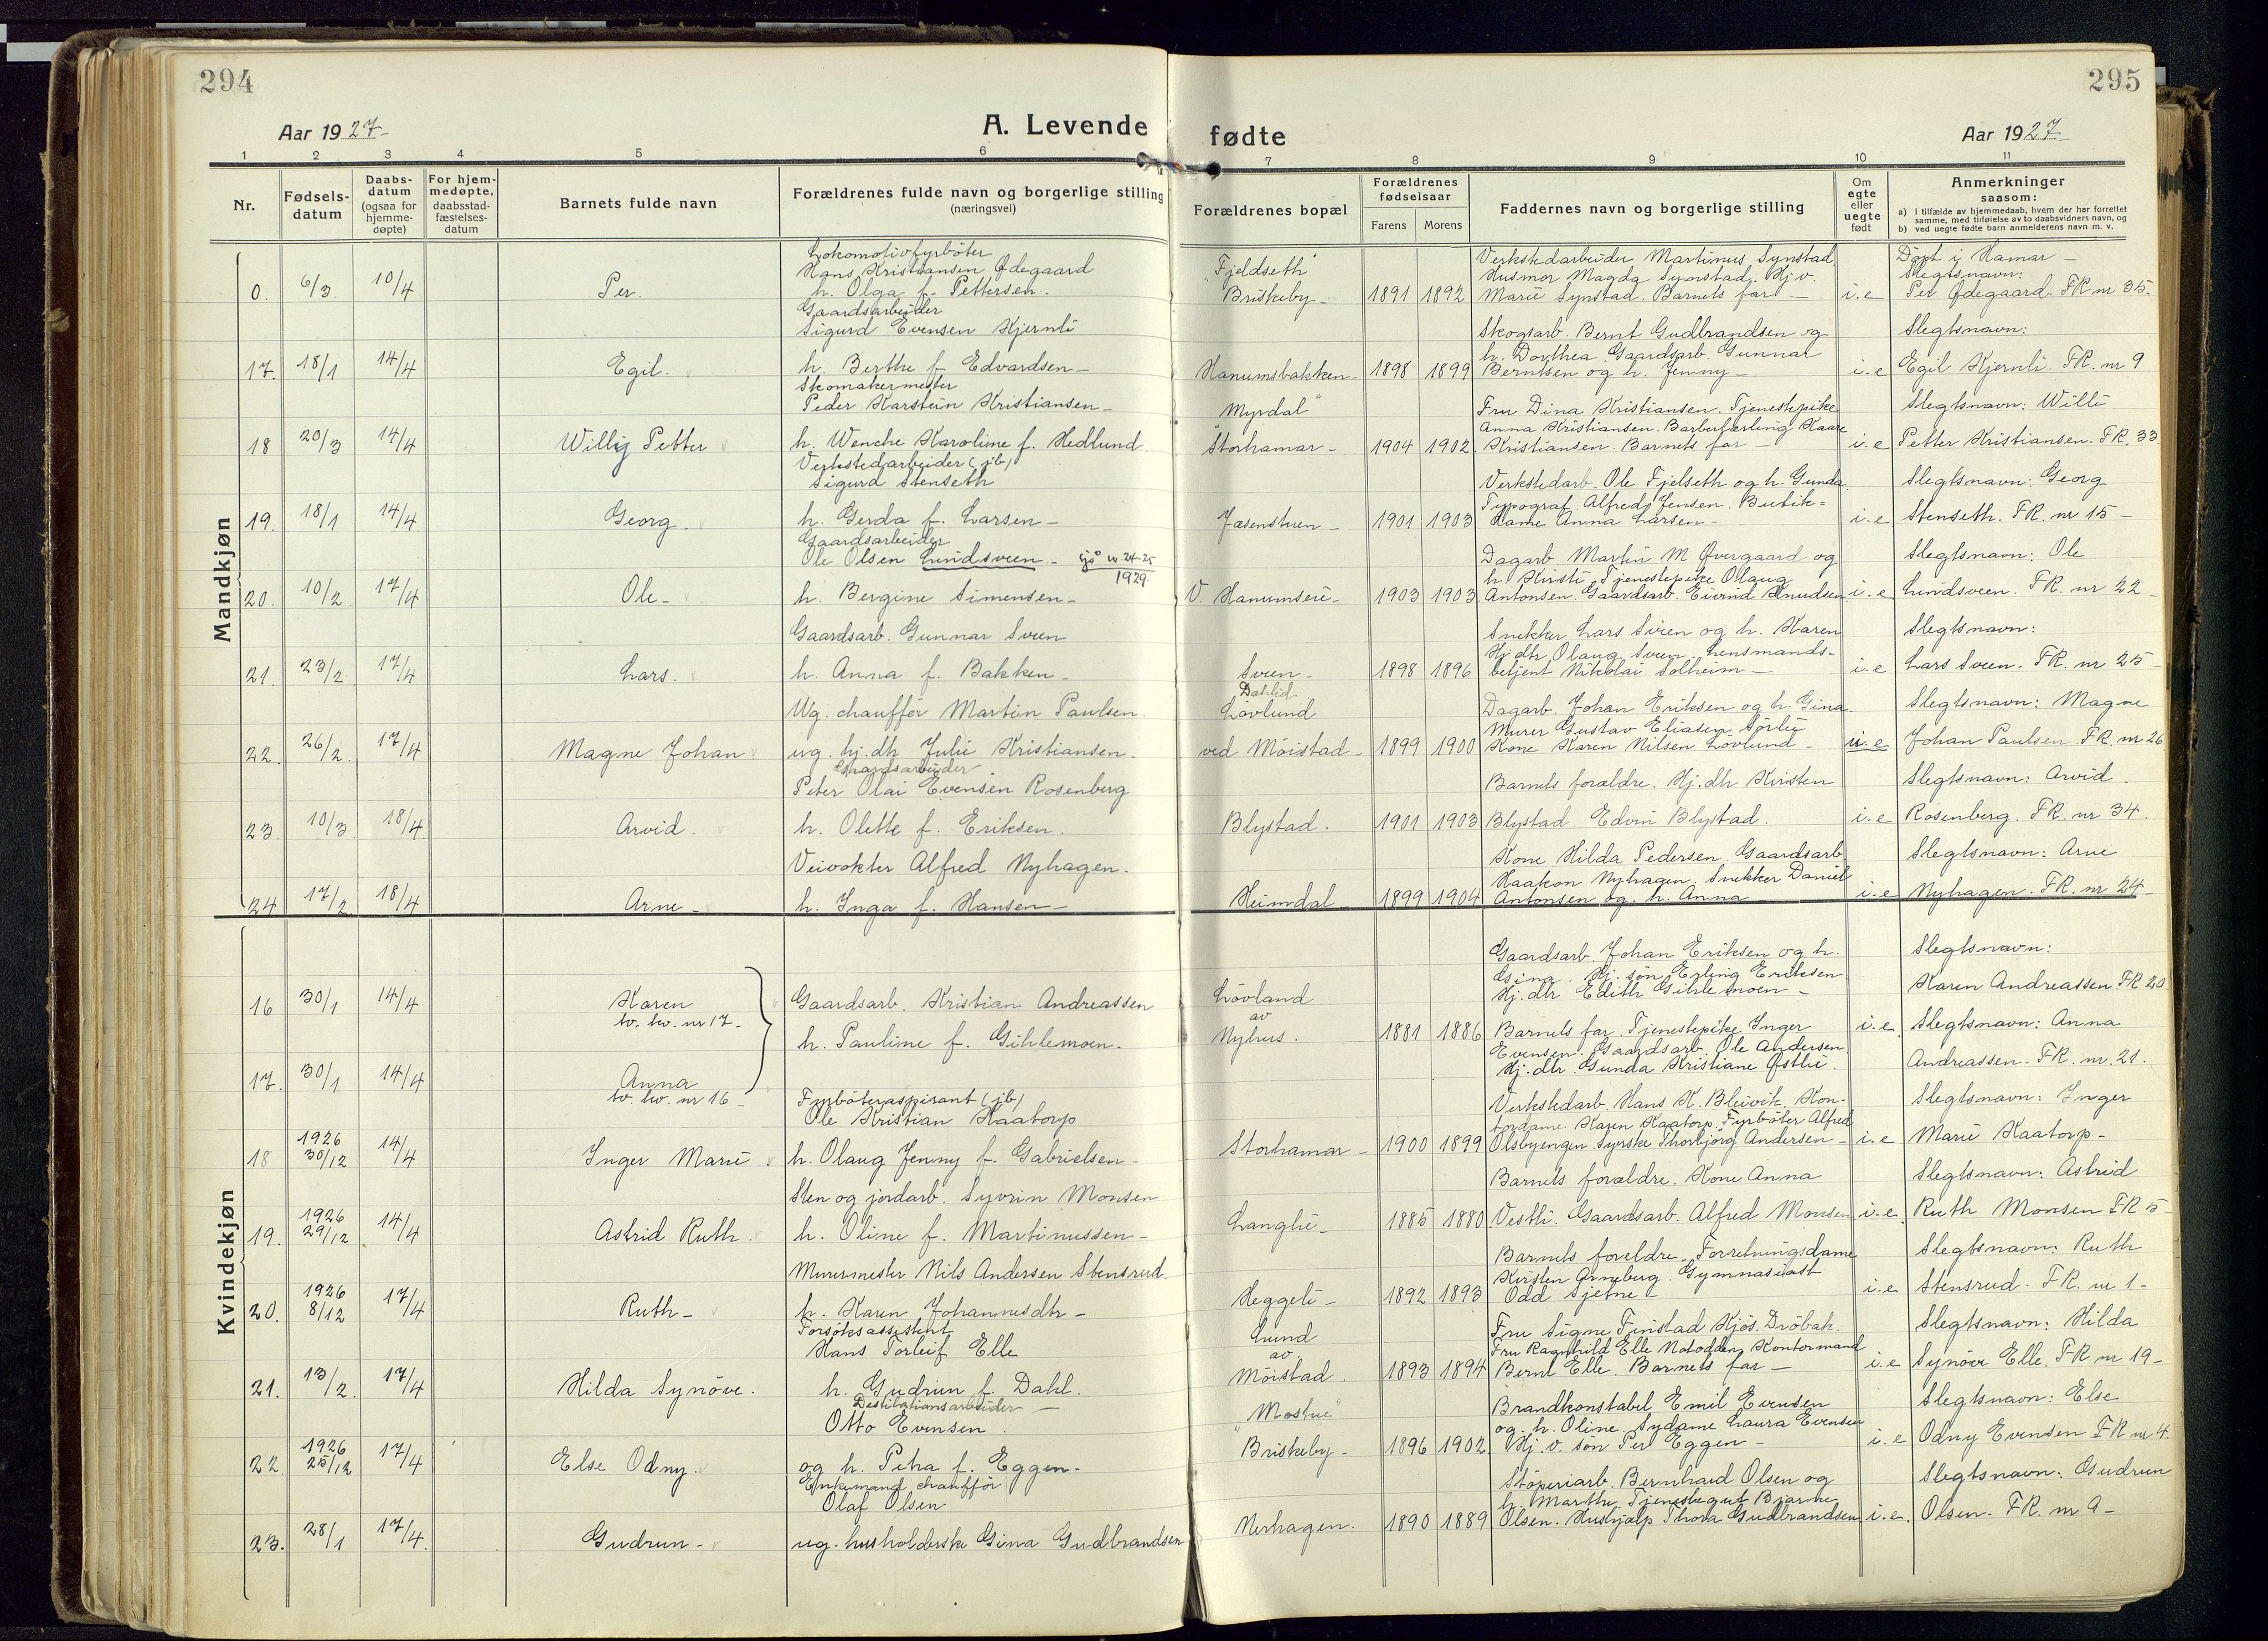 294
Aar 1927-
A. Levende
1 2 3 4 5 6
Nr.
Fødsels-
datum
Daabs-
datum
(ogsaa for
hjemme-
døpte)
For hjem-
medøpte,
daabsstad-
fæstelses-
datum
Barnets fulde navn
Forældrenes fulde navn og borgerlige stilling
(næringsvei)
Mandkjøn
Lokomotivfyrböter
Hans Kristiansen Ødegaard
0. 6/3 10/4 Per. h. Olga f. Pettersen.
Gaardsarbeider
Sigurd Evensen Kjernli
17. 18/1 14/4 Egil. h. Berthe f. Edvardsen-
Skomakermester
Peder Karstein Kristiansen-
18 20/3 14/4 Willy Petter h. Wenche Karoline f. Hedlund
Verkstedarbeider (jb)
Sigurd Stenseth
19. 18/1 14/4 Georg. h. Gerda f. Larsen-
Gaardsarbeider
Ole Olsen Lundsveen-
1929
20. 10/2 17/4 Ole- h. Bergine Simensen-
Gaardsarb. Gunnar Sveen
21. 23/2 17/4 Lars. h. Anna f. Bakken-
Ug. chauffør Martin Paulsen.
22. 26/2 17/4 Magne Johan ug. hj.dtr Julie Kristiansen.
Gaardsarbeider
Peter Olai Evensen Rosenberg
23. 10/3 18/4 Arvid. h. Olette f. Eriksen.
Veivokter Alfred Nyhagen.
24 17/2 18/4 Arne- h. Inga f. Hansen-
Kvindekjøn
16 30/1 14/4 Karen Gaardsarb. Kristian Andreassen
tv. tv. nr 17-
h. Pauline f. Gihlemoen.
17. 30/1 14/4 Anna
tv. tv. nr 16-
Fyrböteraspirant (jb)
Ole Kristian Kaatorp
18 1926 30/12 14/4 Inger Marie h. Olaug Jenny f. Gabrielsen-
Sten og jordarb. Syvrin Monsen
19. 1926 29/12 14/4 Astrid Ruth. h. Oline f. Martinussen-
Murermester Nils Andersen Stensrud.
20. 1926 8/12 17/4 Ruth- h. Karen Johannesdtr-
Forsöksassistent
Hans Torleif Elle
21. 13/2 17/4 Hilda Synöve. h. Gudrun f. Dahl.
Destilationsarbeider-
Otto Evensen
22. 1926 25/12 17/4 Else Odny. og h. Petra f. Eggen.
Enkemand chaufför
Olaf Olsen
23. 28/1 17/4 Gudrun- ug. husholderske Gina Gudbrandsen
295
fødte
Aar 1927-
7 8 9 10 11
Forældrenes bopæl
Forældrenes
fødselsaar
Farens Morens
Faddernes navn og borgerlige stilling
Om
egte
eller
uegte
født
Anmerkninger
saasom:
a) i tilfælde av hjemmedaab, hvem der har forrettet
samme, med tilføielse av to daabsvidners navn, og
b) ved uegte fødte barn anmelderens navn m. v.
"Fjeldseth" Verkstedarbeider Martinus Synstad Döpt i Hamar-
Husmor Magda Synstad. Hj.v. Slegtsnavn:
Briskeby- 1891 1892 Marie Synstad. Barnets far- i.e Per Ødegaard. FR nr 35-
Skogsarb. Bernt Gudbrandsen og Slegtsnavn:
h. Dorthea. Gaardsarb. Gunnar
Hanumsbakken- 1898 1899 Berntsen og h. Jenny- i.e Egil Kjernli. FR. nr 9
Myrdal" Fru Dina Kristiansen. Tjenestepike Slegtsnavn: Willi
Anna Kristiansen. Barberlærling Kaare
Storhamar- 1904 1902 Kristiansen. Barnets far- i.e Petter Kristiansen. FR. 33
Verkstedarb. Ole Fjelseth og h. Gunda Slegtsnavn: Georg
Typograf Alfred Jensen. Butik=
Jæsenstuen- 1901 1903 dame Anna Larsen- i.e Stenseth. FR. nr 15-
Dagarb Martin M Øvergaard og Slegtsnavn: Ole
h. Kirsti. Tjenestepike Olaug
V. Hanumseie- 1903 1903 Antonsen. Gaardsarb. Eivind Knudsen i.e Lundsveen. FR. nr 22-
Snekker Lars Sveen og h. Karen Slegtsnavn:
Hj.dtr Olaug Sveen. Lensmands-
Sveen- 1898 1896 betjent Nikolai Solheim- i.e Lars Sveen. FR. nr 25-
Dahlid
Lövlund Dagarb. Johan Eriksen og h. Gina. Slegtsnavn: Magne
Murer Gustav Eliasen. Sörlie
ved Möistad- 1899 1900 Kone Karen Nilsen Lövlund- u.e Johan Paulsen. FR. nr 26
Barnets forældre. Hj.dtr Kirsten Slegtsnavn: Arvid.
Blystad. 1901 1903 Blystad. Edvin Blystad. i.e Rosenberg. FR. nr 34.
Kone Hilda Pedersen. Gaardsarb. Slegtsnavn: Arne
Haakon Nyhagen. Snekker Daniel
Heimdal- 1899 1904 Antonsen og h. Anna- i.e Nyhagen. FR. nr 24-
Gaardsarb. Johan Eriksen og h. Slegtsnavn:
Gina. Hj. søn Erling Eriksen
Lövland Hj.dtr Edith Gihlemoen- Karen Andreassen FR 20
av
Nyhus. 1881 1886 Barnets far. Tjenestepike Inger i.e Slegtsnavn: Anna
Evensen. Gaardsarb. Ole Andersen
Hj.dtr. Gunda Kristiane Østlie. Andreassen. FR. nr. 21.
Verkstedarb. Hans K. Bleivik. Kon- Slegtsnavn: Inger
tordame Karen Kaatorp. Fyrböter Alfred
Storhamar- 1900 1899 Olsbyengen. Syerske Thorbjörg Andersen- i.e Marie Kaatorp-
Barnets forældre. Kone Anna Slegtsnavn: Astrid
Langlie- 1885 1880 Vestli. Gaardsarb. Alfred Monsen i.e Ruth Monsen FR 5-
Barnets foreldre. Forretningsdame Slegtsnavn: Ruth
Kirsten Arneberg. Gymnasiast
Heggeli- 1892 1893 Odd Sjetne- i.e Stensrud. FR. nr 1-
Lund Fru Signe Finstad Kjös. Dröbak. Slegtsnavn: Hilda
av Fru Ragnhild Elle Notodden. Kontormand
Möistad. 1893 1894 Bernt Elle. Barnets far- i.e Synöve Elle. FR nr 19-
"Mostue" Brandkonstabel Emil Evensen Slegtsnavn: Else
og h. Oline. Sydame Laura Evensen
Briskeby- 1896 1902 Hj.v. søn Per Eggen- i.e Odny Evensen FR nr 4.
Stöperiarb. Bernhard Olsen og Slegtsnavn: Gudrun
h. Marthe. Tjenestegut Bjarne
Nerhagen. 1890 1889 Olsen. Hushjælp Thora Gudbrandsen i.e. Olsen. FR. nr 9-